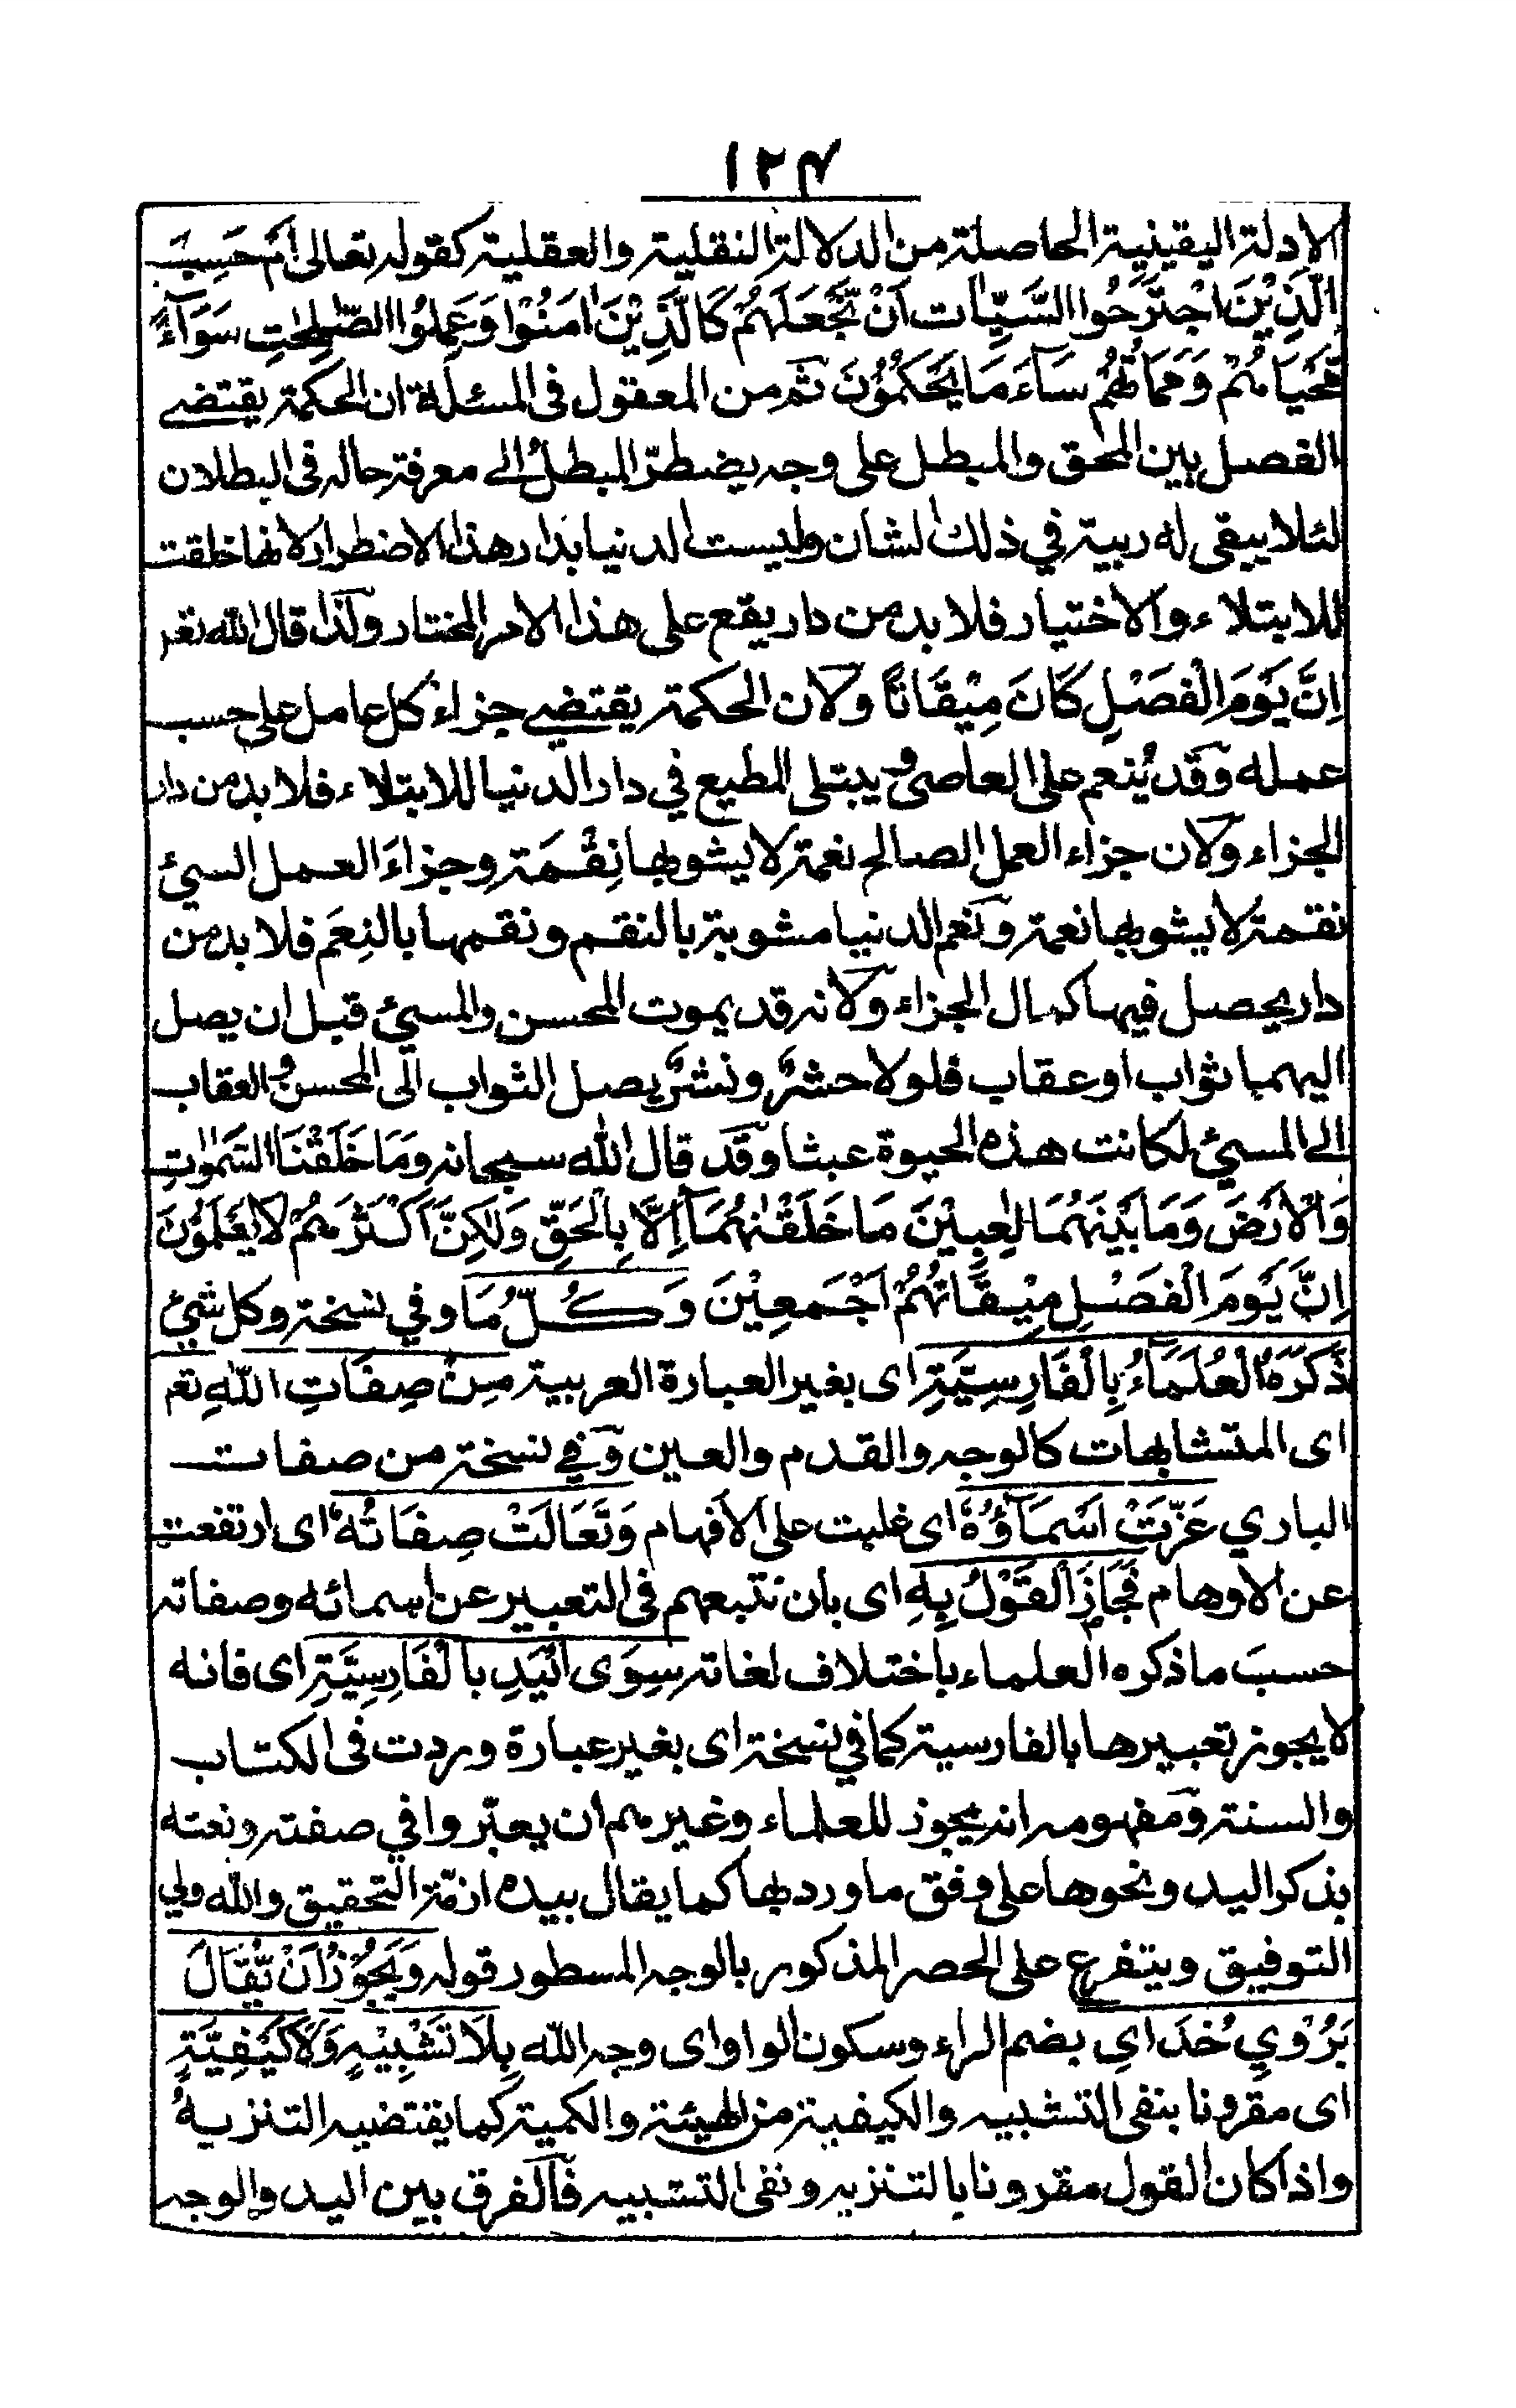 ١٢٤
الادلة اليقينية الحاصلة من الدلالة النقلية والعقلية كقوله تعالى اَمْ حَسِبَ
الَّذِيْنَ اجْتَرَحُوا السَّيِّاٰت اَنْ نَّجْعَلَهُمْ كَالَّذِيْنَ اٰمَنُوْا وَعَمِلُوا الصّٰلِحٰتِ سَوَآءً
مَّحْيَاهُمْ وَمَمَاتُهُمْ سَآءَ مَا يَحْكُمُوْنَ ثم من المعقول فى المسئلة ان الحكمة يقتضے
الفصل بين المحق والمبطل على وجه يضطرّ المبطلُ الے معرفة حاله فى البطلان
لئلا يبقى له ريبة في ذلك الشان وليست الدنيا بدار هذا الاضطرار لانها خلقت
للابتلاء والاختيار فلا بد من دار يقع على هذا الامر المختار ولذا قال الله تعـ
اِنَّ يَوْمَ الْفَصْلِ كَانَ مِيْقَاتًا ولان الحكمة يقتضے جزاء كل عامل على حسب
عمله وقد يُنعم على العاصى و يبتلى المطيع في دار الدنيا للابتلاء فلا بد من دار
الجزاء ولان جزاء العمل الصالح نعمة لا يشوبها نِقْمَة وجزاءَ العمل السئ
نقمة لا يشوبها نعمة ونعم الدنيا مشوبة بالنقم ونقمها بالنِعَم فلا بد من
دار يحصل فيها كمال الجزاء ولانه قد يموت المحسن والمسئ قبل ان يصل
اليهما ثواب او عقاب فلولا حشرٌ ونشرٌ يصل الثواب الى المحسن و العقاب
الے المسئ لكانت هذه الحيوة عبثا وقد قال الله سبحانه وَمَا خَلَقْنَا السَّمٰوٰتِ
وَالْاَرْضَ وَمَا بَيْنَهُمَا لٰعِبِيْنَ مَا خَلَقْنٰهُمَآ اِلَّا بِالْحَقِّ وَلٰكِنَّ اَكْثَرَهُمْ لَا يَعْلَمُوْنَ
اِنَّ يَوْمَ الْفَصْلِ مِيْقَاتُهُمْ اَجْمَعِيْنَ وَكُلُّ مَا وفي نسخة وكل شئ
ذَكَرَهُ الْعُلَمَآءُ بِالْفَارِسِيَّةِ اى بغير العبارة العربية مِنْ صِفَاتِ اللّٰهِ تعـ
اى المتشابهات كالوجه والقدم والعين وفي نسخة من صفات
الباري عَزَّتْ اَسْمَآؤُهٗ اى غلبت على الافهام وَتَعَالَتْ صِفَاتُهٗ اى ارتفعت
عن الاوهام فَجَازَ الْقَوْلُ بِهٖ اى بان نتبعهم فى التعبير عن اسمائه وصفاته
حسبَ ما ذكره العلماء باختلاف لغاته سِوَى الْيَدِ بِالْفَارِسِيَّةِ اى فانه
لا يجوز تعبيرها بالفارسية كما في نسخة اى بغير عبارة وردت فى الكتاب
والسنة ومفهومه انه يجوز للعلماء وغيرهم ان يعبّروا في صفته ونعته
بذكر اليد ونحوها على وفق ما ورد بها كما يقال بيده ازمّة التحقيق والله ولي
التوفيق ويتفرع على الحصر المذكور بالوجه المسطور قوله وَيَجُوْزُ اَنْ يُّقَالَ
بَرُوْيِ خُدَاي بضم الراء وسكون الواو اى وجه الله بِلَا تَشْبِيْهٍ وَلَا كَيْفِيَّةٍ
اى مقرونا بنفى التشبيه والكيفية من الهيئة والكمية كما يقتضيه التنزيهُ
واذا كان القول مقرونا بالتنزيه ونفى التشبيه فالفرق بين اليد والوجه